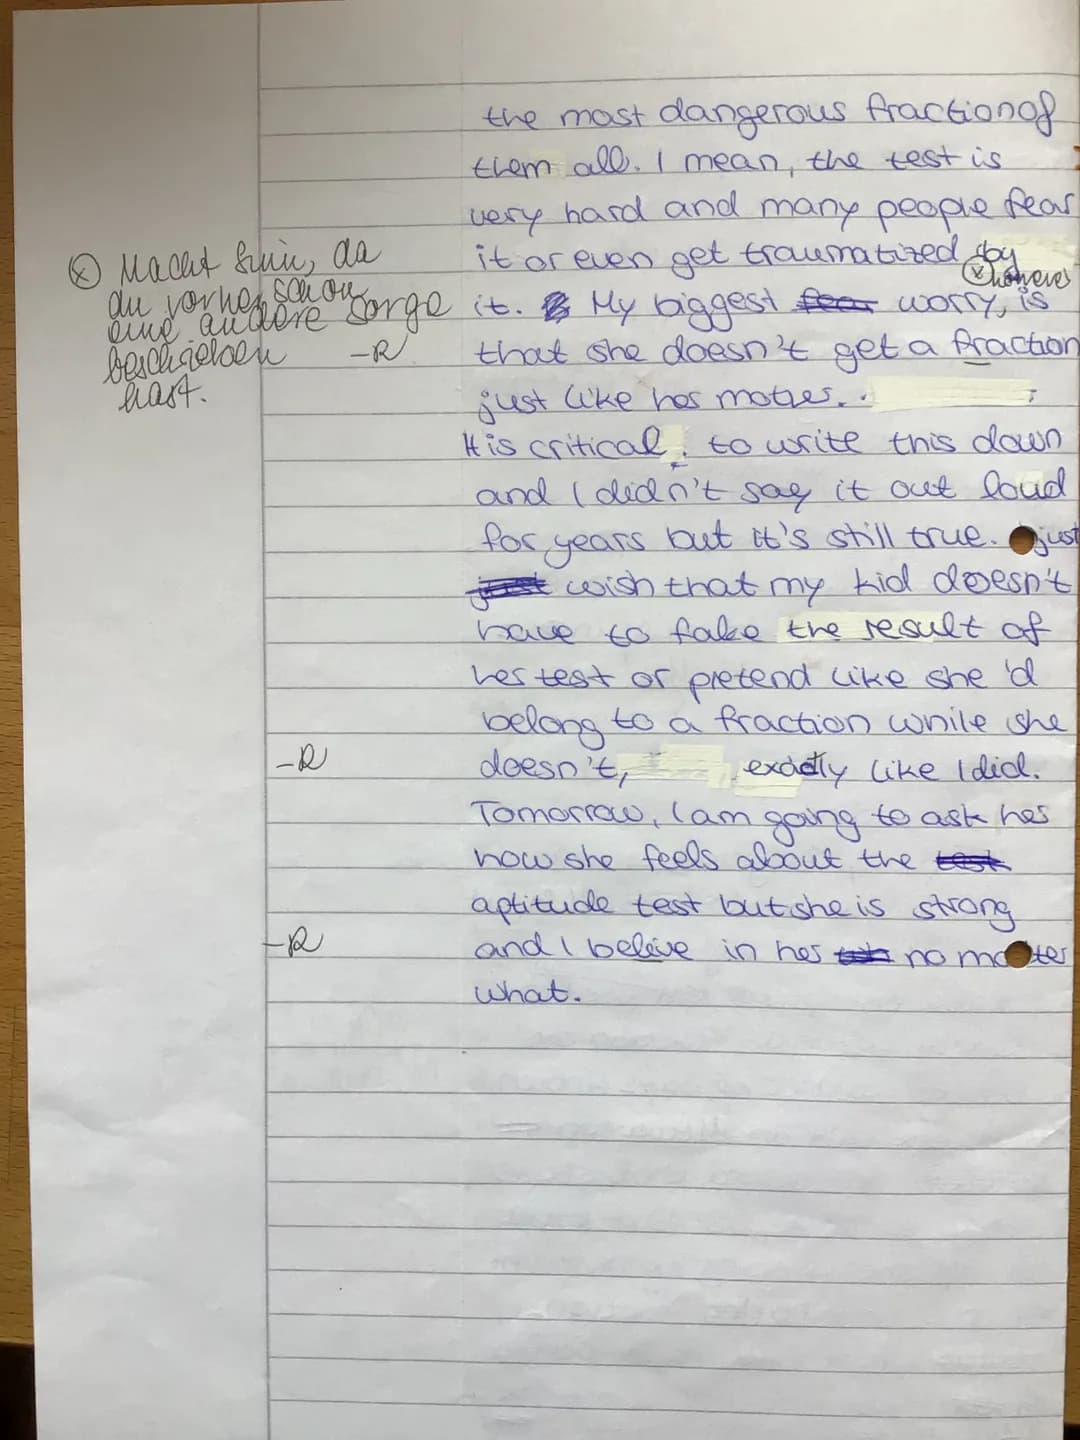 the most dangerous fraction of
them all. I mean, the test is
very hard and many people fear
it or even get traumatized by
however
it. My biggest fear worry, is
that she doesn't get a fraction
just like her mother.
It is critical to write this down
and I didn't say it out loud
for years but it's still true. just
just wish that my kid doesn't
have to fake the result of
her test or pretend like she'd
belong to a fraction while she
doesn't, exactly like I did.
Tomorrow, I am going to ask her
how she feels about the test
aptitude test but she is strong
and I beleive in her no matter
what.
Macht Sinn, da
du vorher schon
eine andere Sorge
beschrieben -R
hast.
-R
-R